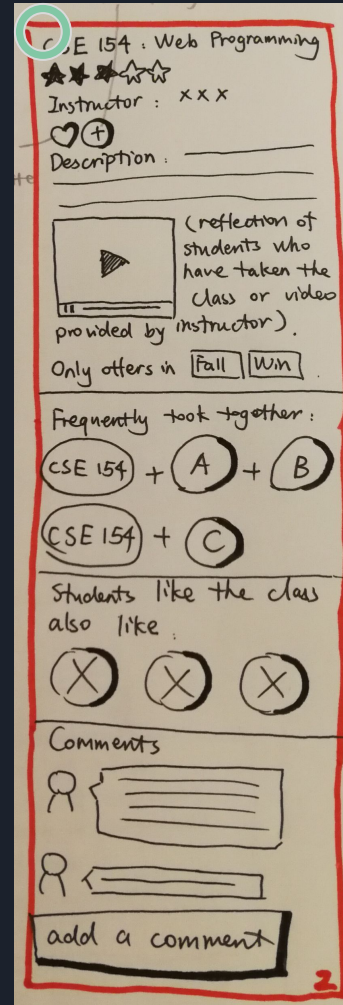 CSE 154 : Web Programming
Instructor : x x x
Description :
(reflection of
students who
have taken the
class or video
provided by instructor).
Only offers in Fall Win.
Frequently took together :
CSE 154 + A + B
CSE 154 + C
Students like the class
also like :
X X X
Comments
add a comment
2